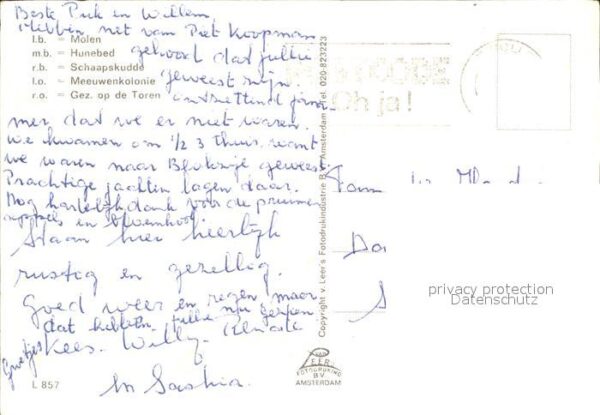 Beste Puk en Willem,
Hebben net van Piet Koopman
gehoord dat jullie
geweest zijn.
Ontzettend jam-
mer dat we er niet waren.
We kwamen om 1/2 3 thuis, want
we waren naar Blokzijl geweest
Prachtige jachten lagen daar.
Nog hartelijk dank voor de pruimen
appels en bloemkool
Staan hier heerlijk
rustig en gezellig.
Goed weer en regen, maar
dat hebben jullie
Groetjes Kees. Willy.
en Saskia.
l.b. = Molen
m.b. = Hunebed
r.b. = Schaapskudde
l.o. = Meeuwenkolonie
r.o. = Gez. op de Toren
L 857
Copyright v. Leer's Fotodrukindustrie B.V. Amsterdam Tel. 020-823223
POSTCODE
Oh ja!
Fam.
VAN LEER
FOTODRUKIND
BV
AMSTERDAM
privacy protection
Datenschutz